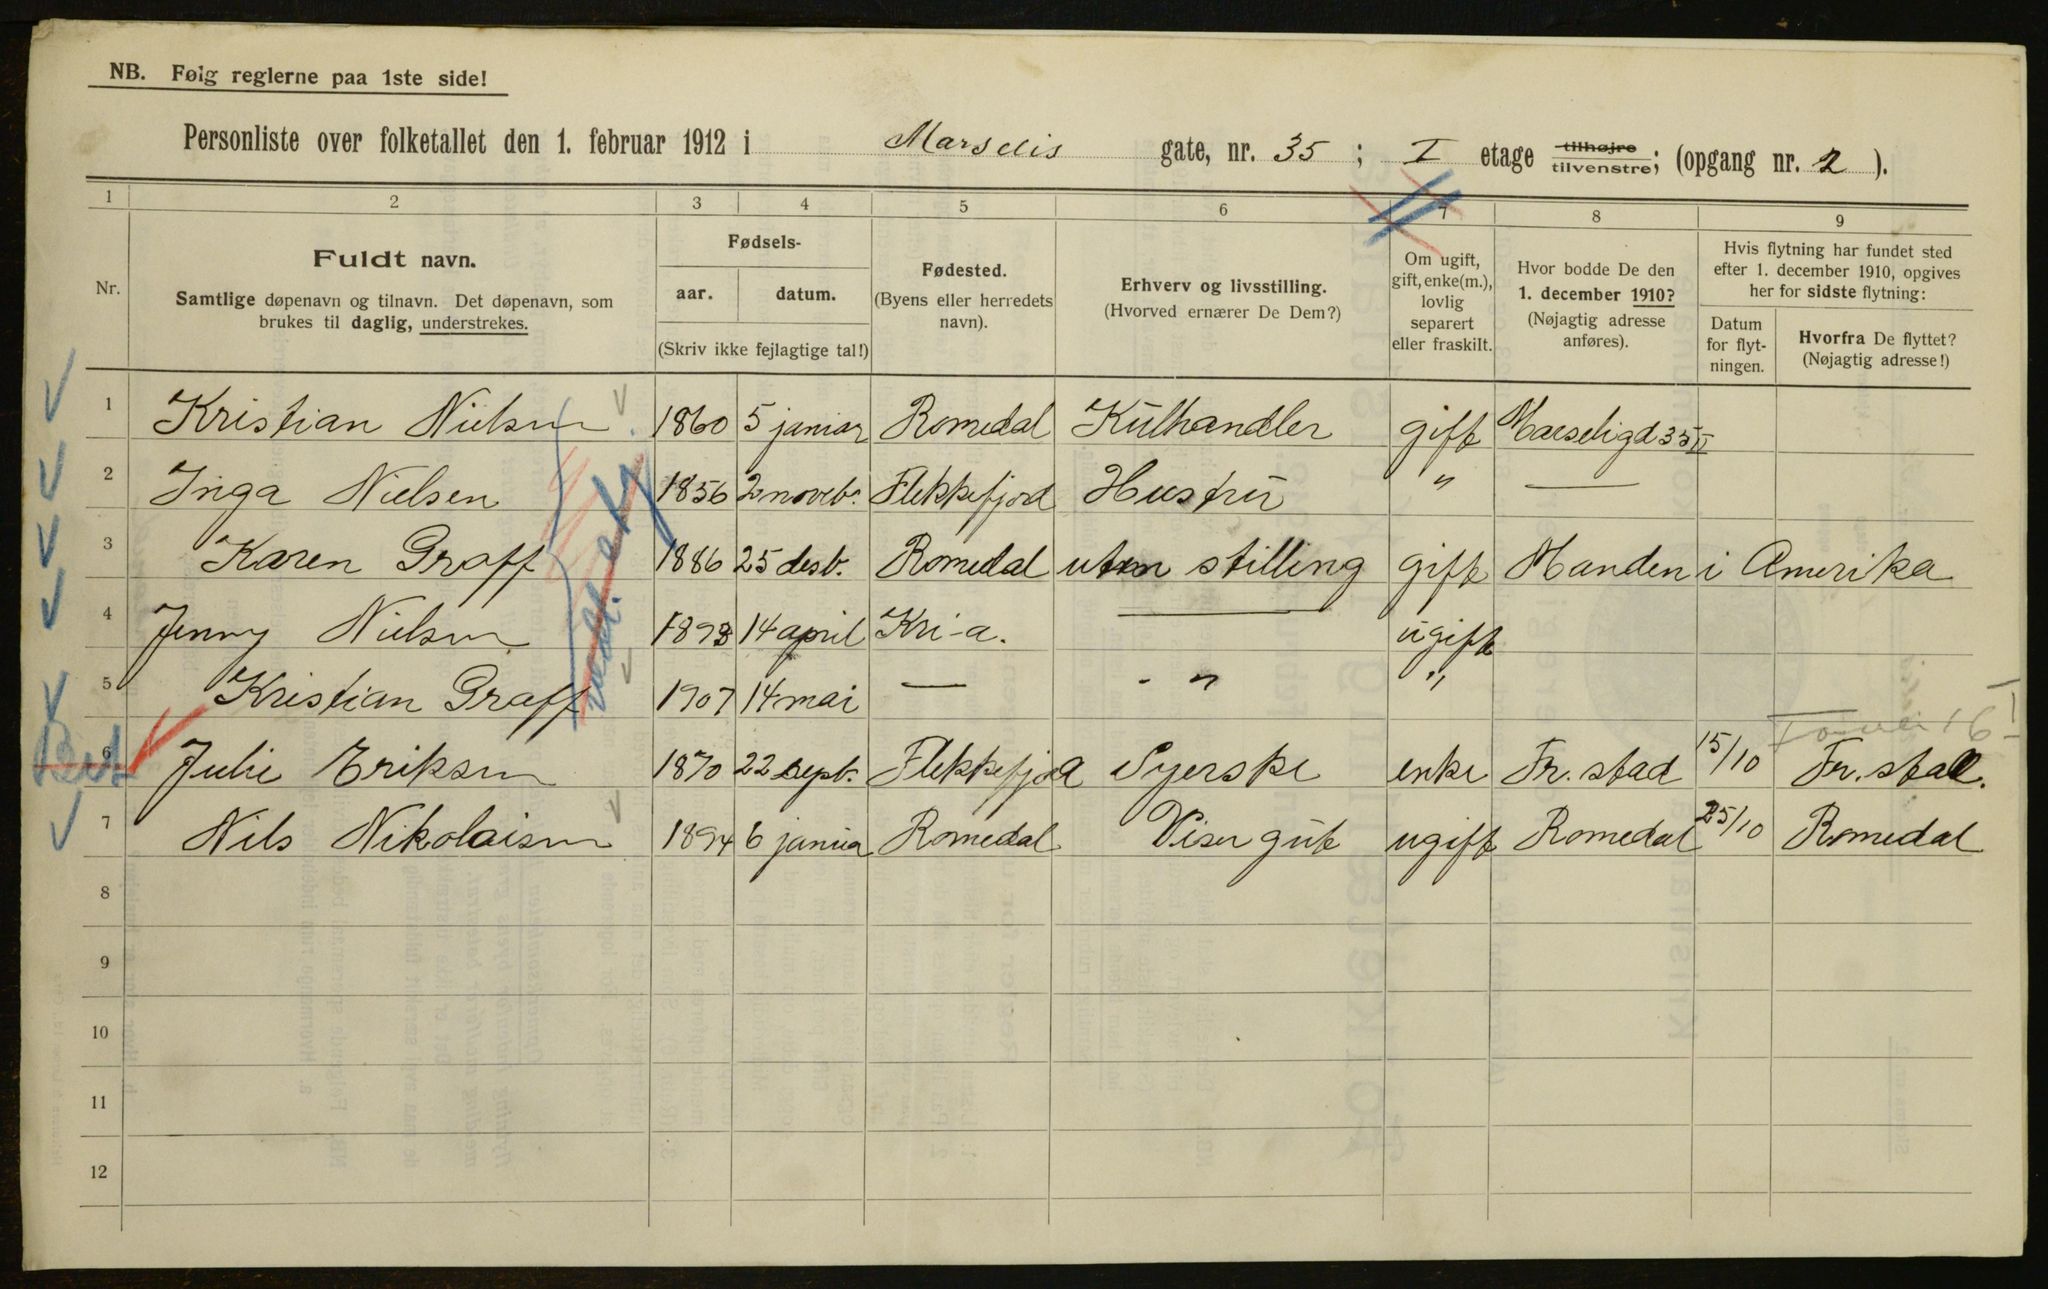 NB. Følg reglerne paa 1ste side!
Personliste over folketallet den 1. februar 1912 i Marselis gate, nr. 35 ; I etage tilhøjre tilvenstre; (opgang nr. 2 ).
1 2 3 4 5 6 7 8 9
Nr.
Fuldt navn.
Samtlige døpenavn og tilnavn. Det døpenavn, som
brukes til daglig, understrekes.
Fødsels-
aar. datum.
(Skriv ikke fejlagtige tal!)
Fødested.
(Byens eller herredets
navn).
Erhverv og livsstilling.
(Hvorved ernærer De Dem?)
Om ugift,
gift, enke(m.),
lovlig
separert
eller fraskilt.
Hvor bodde De den
1. december 1910?
(Nøjagtig adresse
anføres).
Hvis flytning har fundet sted
efter 1. december 1910, opgives
her for sidste flytning:
Datum
for flyt-
ningen.
Hvorfra De flyttet?
(Nøjagtig adresse!)
1 Kristian Nielsen 1860 5 januar Romedal Kulhandler gift Marseligd 35 II
2 Inga Nielsen 1856 2 novbr. Flekkefjord Hustru " —
3 Karen Graff 1886 25 desb. Romedal uten stilling gift Manden i Amerika
4 Jenny Nielsen 1893 14 april Kri-a. — ugift
5 Kristian Graff 1907 14 mai — - " "
6 Julie Eriksen 1870 22 sept. Flekkefjord Syerske enke Fr. stad 15/10 Fr. stad.
7 Nils Nikolaisen 1894 6 januar Romedal Viser gut ugift Romedal 25/10 Romedal
8
9
10
11
12